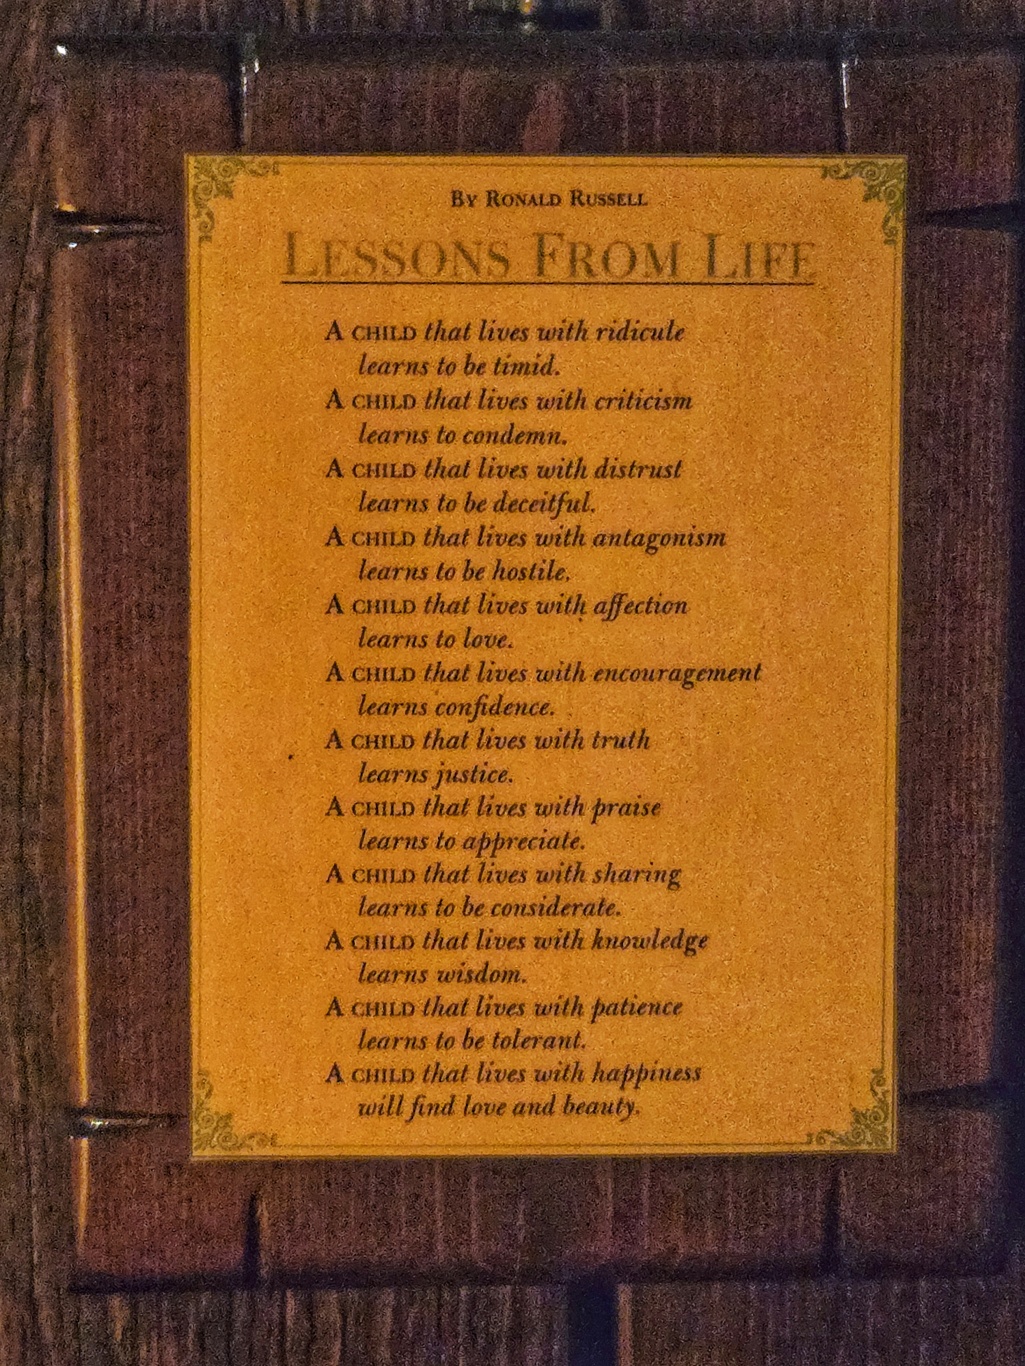 By Ronald Russell
Lessons From Life
A child that lives with ridicule
learns to be timid.
A child that lives with criticism
learns to condemn.
A child that lives with distrust
learns to be deceitful.
A child that lives with antagonism
learns to be hostile.
A child that lives with affection
learns to love.
A child that lives with encouragement
learns confidence.
A child that lives with truth
learns justice.
A child that lives with praise
learns to appreciate.
A child that lives with sharing
learns to be considerate.
A child that lives with knowledge
learns wisdom.
A child that lives with patience
learns to be tolerant.
A child that lives with happiness
will find love and beauty.